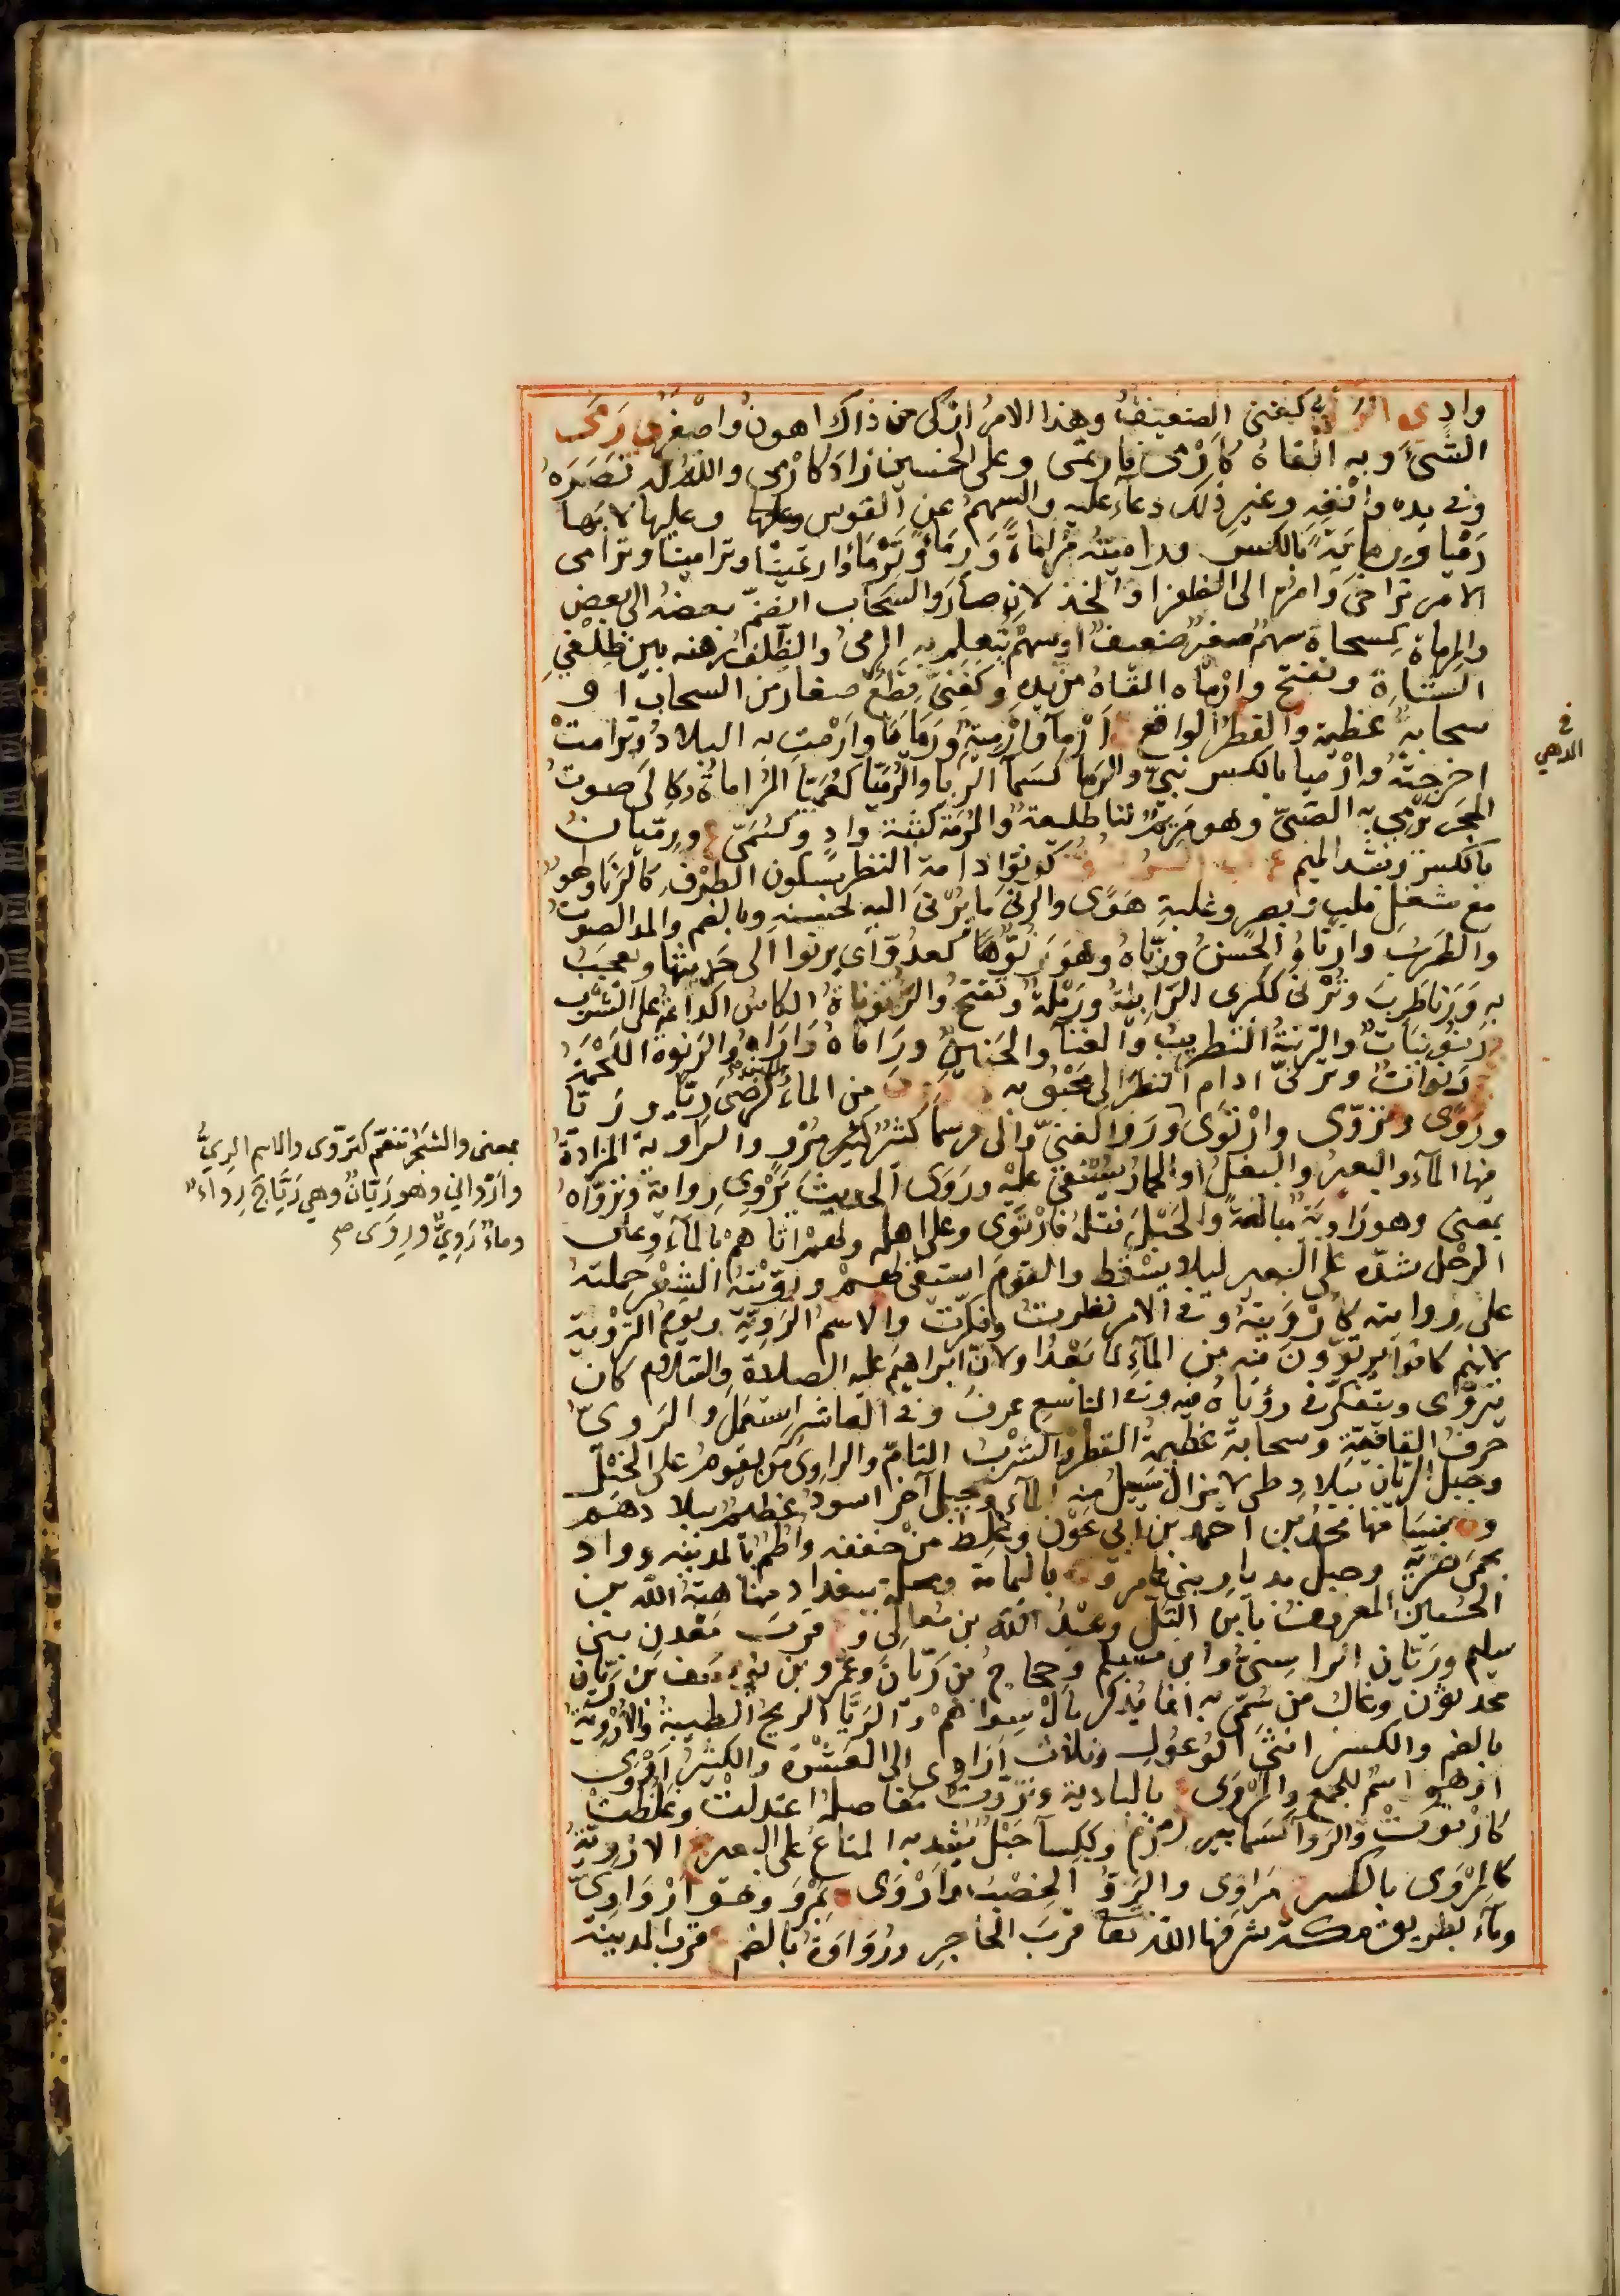 كغنى الضعيف وهذا الامر اركى من ذاك اهون واصغر ى رمى
الشئ وبه القاه كارمى فارتمى وعلى الخمسين زاد كارمى والله له نصره
وفى يده وانفه وغير ذلك دعاء عليه والسهم عن القوس وعليها لا بها
رميا ورماية بالكسر وراميته مراماة ورماء وترماء وارتمينا وترامينا وترامى
الامر تراخى وامره الى الظفر او الخذلان صار والسحاب انضم بعضه الى بعض
والمرماة كمسحاة سهم صغير ضعيف او سهم يتعلم به الرمى والظلف وهنة بين ظلفى
الشاة وتفتح وارماه القاه من يده وكغنى قطع صغار من السحاب او
سحابة عظيمة القطر الواقع ج ارماء وارمية ورمايا وارمت به البلاد وترامت
اخرجته وارميا بالكسر نبى والرما كسماء الربا والرميا كعميا المراماة وكالى صوت
الحجر يرمى به الصبى وهو مرتم لنا طليعة والرمة كثبة واد وكسمى ع ورميان
بالكسر وتشد الميم ع
كدنوا ادامة النظر بسكون الطرف كالرنا ولهو
مع شغل قلب وبصر وغلبة هوى والرنى ما يرنى اليه لحسنه وبالضم والمد الصوت
والطرب وارناه الحسن ورناه وهو رنوها كعدو اى يرنوا الى حديثها ويعجب
به ورنا طرب وترنى ككرى الزانية ورملة وتفتح والرنوناة الكاس الدائمة على الشرب
ج رنونيات والترنية التطريب والغناء والحنين وراناه داراه والرنوة اللحمة
ج رنوات وترنى ادام النظر الى محبوبه روى من الماء واللبن كرضى ريا وريا
وروى وتروى وارتوى وروا كغنى والى وسما كثير مرو والراوية المزادة
فيها الماء والبعير والبغل او الحمار يستقى عليه وروى الحديث يروى رواية وترواه
بمعنى وهو راوية مبالغة والحبل فتله فارتوى وعلى اهله ولهم اتاهم بالماء وعلى
الرحل شده على البعير ليلا يسقط والقوم استقى لهم ورويته الشعر حملته
على روايته كارويته وفى الامر نظرت وفكرت والاسم الروية ويوم التروية
لانهم كانوا يرتوون فيه من الماء لما بعد او لان ابراهيم عليه الصلاة والسلام كان
يتروى ويتفكر فى رؤياه فيه وفى التاسع عرف وفى العاشر استعمل والروى
حرف القافية وسحابة عظيمة القطر والشرب التام والراوى من يقوم على الخيل
وجبل الريان ببلاد طى لا يزال يسيل منه الماء وجبل آخر اسود عظيم ببلادهم
وة بنسا منها محمد بن احمد بن ابى عون وغلط من خففه واطم بالمدينة وواد
بحمى ضرية وجبل بديار بنى عامر وة باليمامة ومحلة ببغداد منها هبة الله بن
الحسين المعروف بابن التل وعبد الله بن معالى وة قرب معدن بنى
سليم وريان الراسبى وابن مسلم وحجاج بن ريان وعمرو بن يوسف بن ريان
محدثون وغالب من سمى به انما يذكر بال سواهم والريا الريح الطيبة والاروية
بالضم والكسر انثى الوعول وثلاث اراوى الى العشر والكثير اروى
او هو اسم للجمع والمروى ع بالبادية وتروت مفاصله اعتدلت وغلظت
كارتوت والروا كسما بير زمزم وككسا حبل يشد به المتاع على البعير ج الاروية
كالمروى بالكسر ج مراوى والرو الخصب واروى ة بمرو وهو ارواوى
وماء بطريق مكة شرفها الله تعا قرب الحاجر ورواوة بالضم ع قرب المدينة
فى
المدهى
بمعنى والشجر تنعم كتروى والاسم الرى
واروانى وهو ريان وهى ريا ج رواء
وماء روى وروى صح